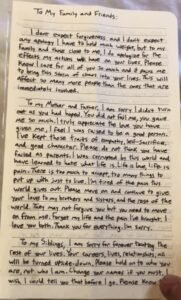 To My Family and Friends:
I dont expect forgiveness, and I don't expect
any apology I have to hold much weight, but to my
family and those close to me, I do apologize for the
effects my actions will have on your lives. Please
know I care for all of you so much and it pains me
to bring this storm of chaos into your lives. This will
affect so many more people than the ones that are
immediately involved.
To my Mother and Father, I am sorry I didn't turn
out as you had hoped. You did not fail me, you gave
me so much. I truly appreciate the love you have
given me, I feel I was raised to be a good person.
I've kept those traits of empathy, self-sacrifice,
and good character. Please do not think you have
failed as parents. I was corrupted by this world and
have learned to hate what it is. Life is love, life is
pain. There is too much to accept, too many things to
live with just to live. I'm tired of the pain this
world gives out. Please move on and continue to give
your love to my brothers and sisters, and the rest of the
world. They may not forgive you but you need to move
on from me, forget my life and the pain I've brought. I
love you both. Thank you for everything. Im sorry.
To my Siblings, I am sorry for forever tainting the
rest of your lives. Your careers, lives, relationships, all
will be turned upside-down. Please hold on to who you
are, not who I am. Change your names if you must, I
would tell you that before I go. Please Know